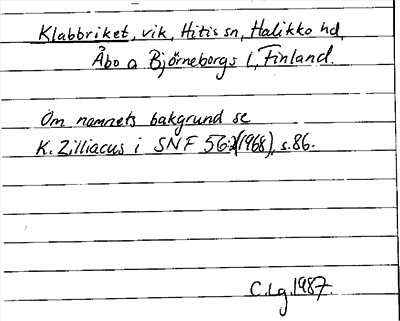 Klabbriket, vik, Hitis sn, Halikko hd,
Åbo o Björneborgs l, Finland.
Om namnets bakgrund se
K. Zilliacus i SNF 56:2(1968), s.86.
C.Lg.1987.